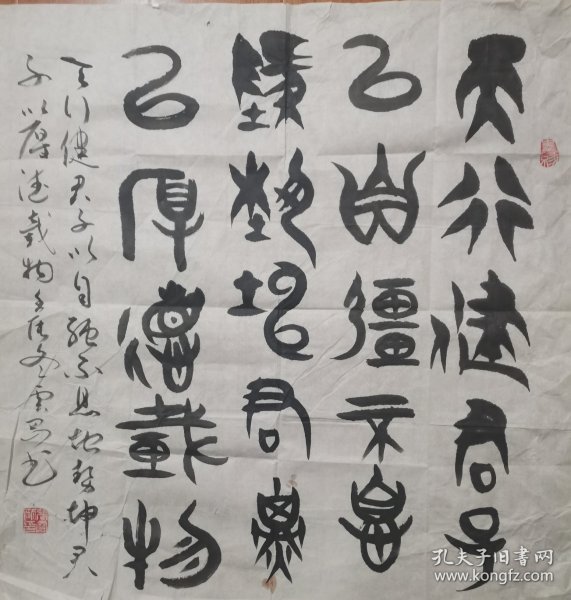 天行健君子
以自彊不息
墬埶坤君子
以厚德载物
天行健君子以自强不息地势坤君
子以厚德载物
孔夫子旧书网
www.kongfz.com